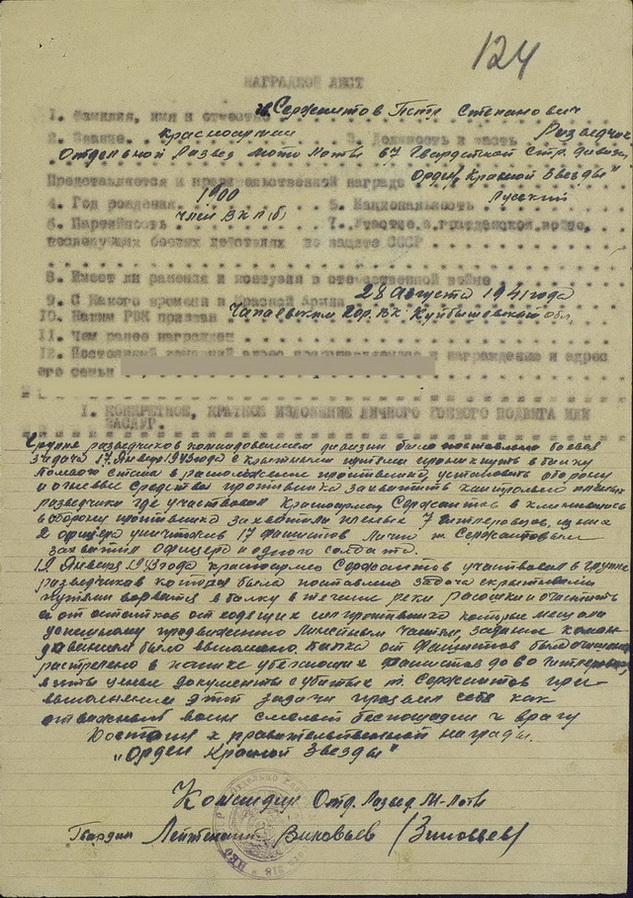 124
НАГРАДНОЙ ЛИСТ
1. Фамилия, имя и отчество Сержантов Петр Степанович
2. Звание Красноармеец 3. Должность и часть Разведчик
Отдельной Развед мото Роты 67 Гвардейской Стр. дивизии
Представляется к правительственной награде Орден "Красной Звезды"
4. Год рождения 1900 5. Национальность Русский
6. Партийность член ВКП(б) 7. Участие в гражданской войне,
последующих боевых действиях по защите СССР
8. Имеет ли ранения и контузии в отечественной войне
9. С какого времени в Красной Армии 28 Августа 1941 года
10. Каким РВК призван Чапаевским гор. ВК. Куйбышевской обл.
11. Чем ранее награжден
12. Постоянный домашний адрес к награждению и адрес
его семьи
I. КОНКРЕТНОЕ, КРАТКОЕ ИЗЛОЖЕНИЕ ЛИЧНОГО БОЕВОГО ПОДВИГА ИЛИ
ЗАСЛУГ.
Группе разведчиков командованием дивизии была поставлена боевая
задача 17 Января 1943 года скрытными путями проникнуть в балку
в расположение противника, установить оборону
и огневые средства противника захватить контрольно пленных
разведчики где участвовал Красноармеец Сержантов вклинившись
в оборону противника захватили пленых 7 гитлеровцев, из них
2 офицера уничтожив 17 фашистов Лично т. Сержантовым
захватил офицера и одного солдата.
19 Января 1943 года красноармеец Сержантов участвовал в группе
разведчиков которая была поставлена задача скрытными
путями ворватся в балку в течении реки расошки и очистить
её от остатков отходящих сил противника которые мешали
успешному продвижению частям, задание коман-
дованием было выполнено. Балка от фашистов была очищена
растрелено в панике убегающих фашистов до 60 гитлеровцев,
взяты ценые документы с убитых т. Сержантов при
выполнении этой задачи проявил себя как
отважный воин смелый беспощадин к врагу
Достоин к правительственной награды.
"Орден Красной Звезды"
Командир Отд. Развед. М-Роты
Гвардии Лейтенант Зиновьев (Зиновьев)